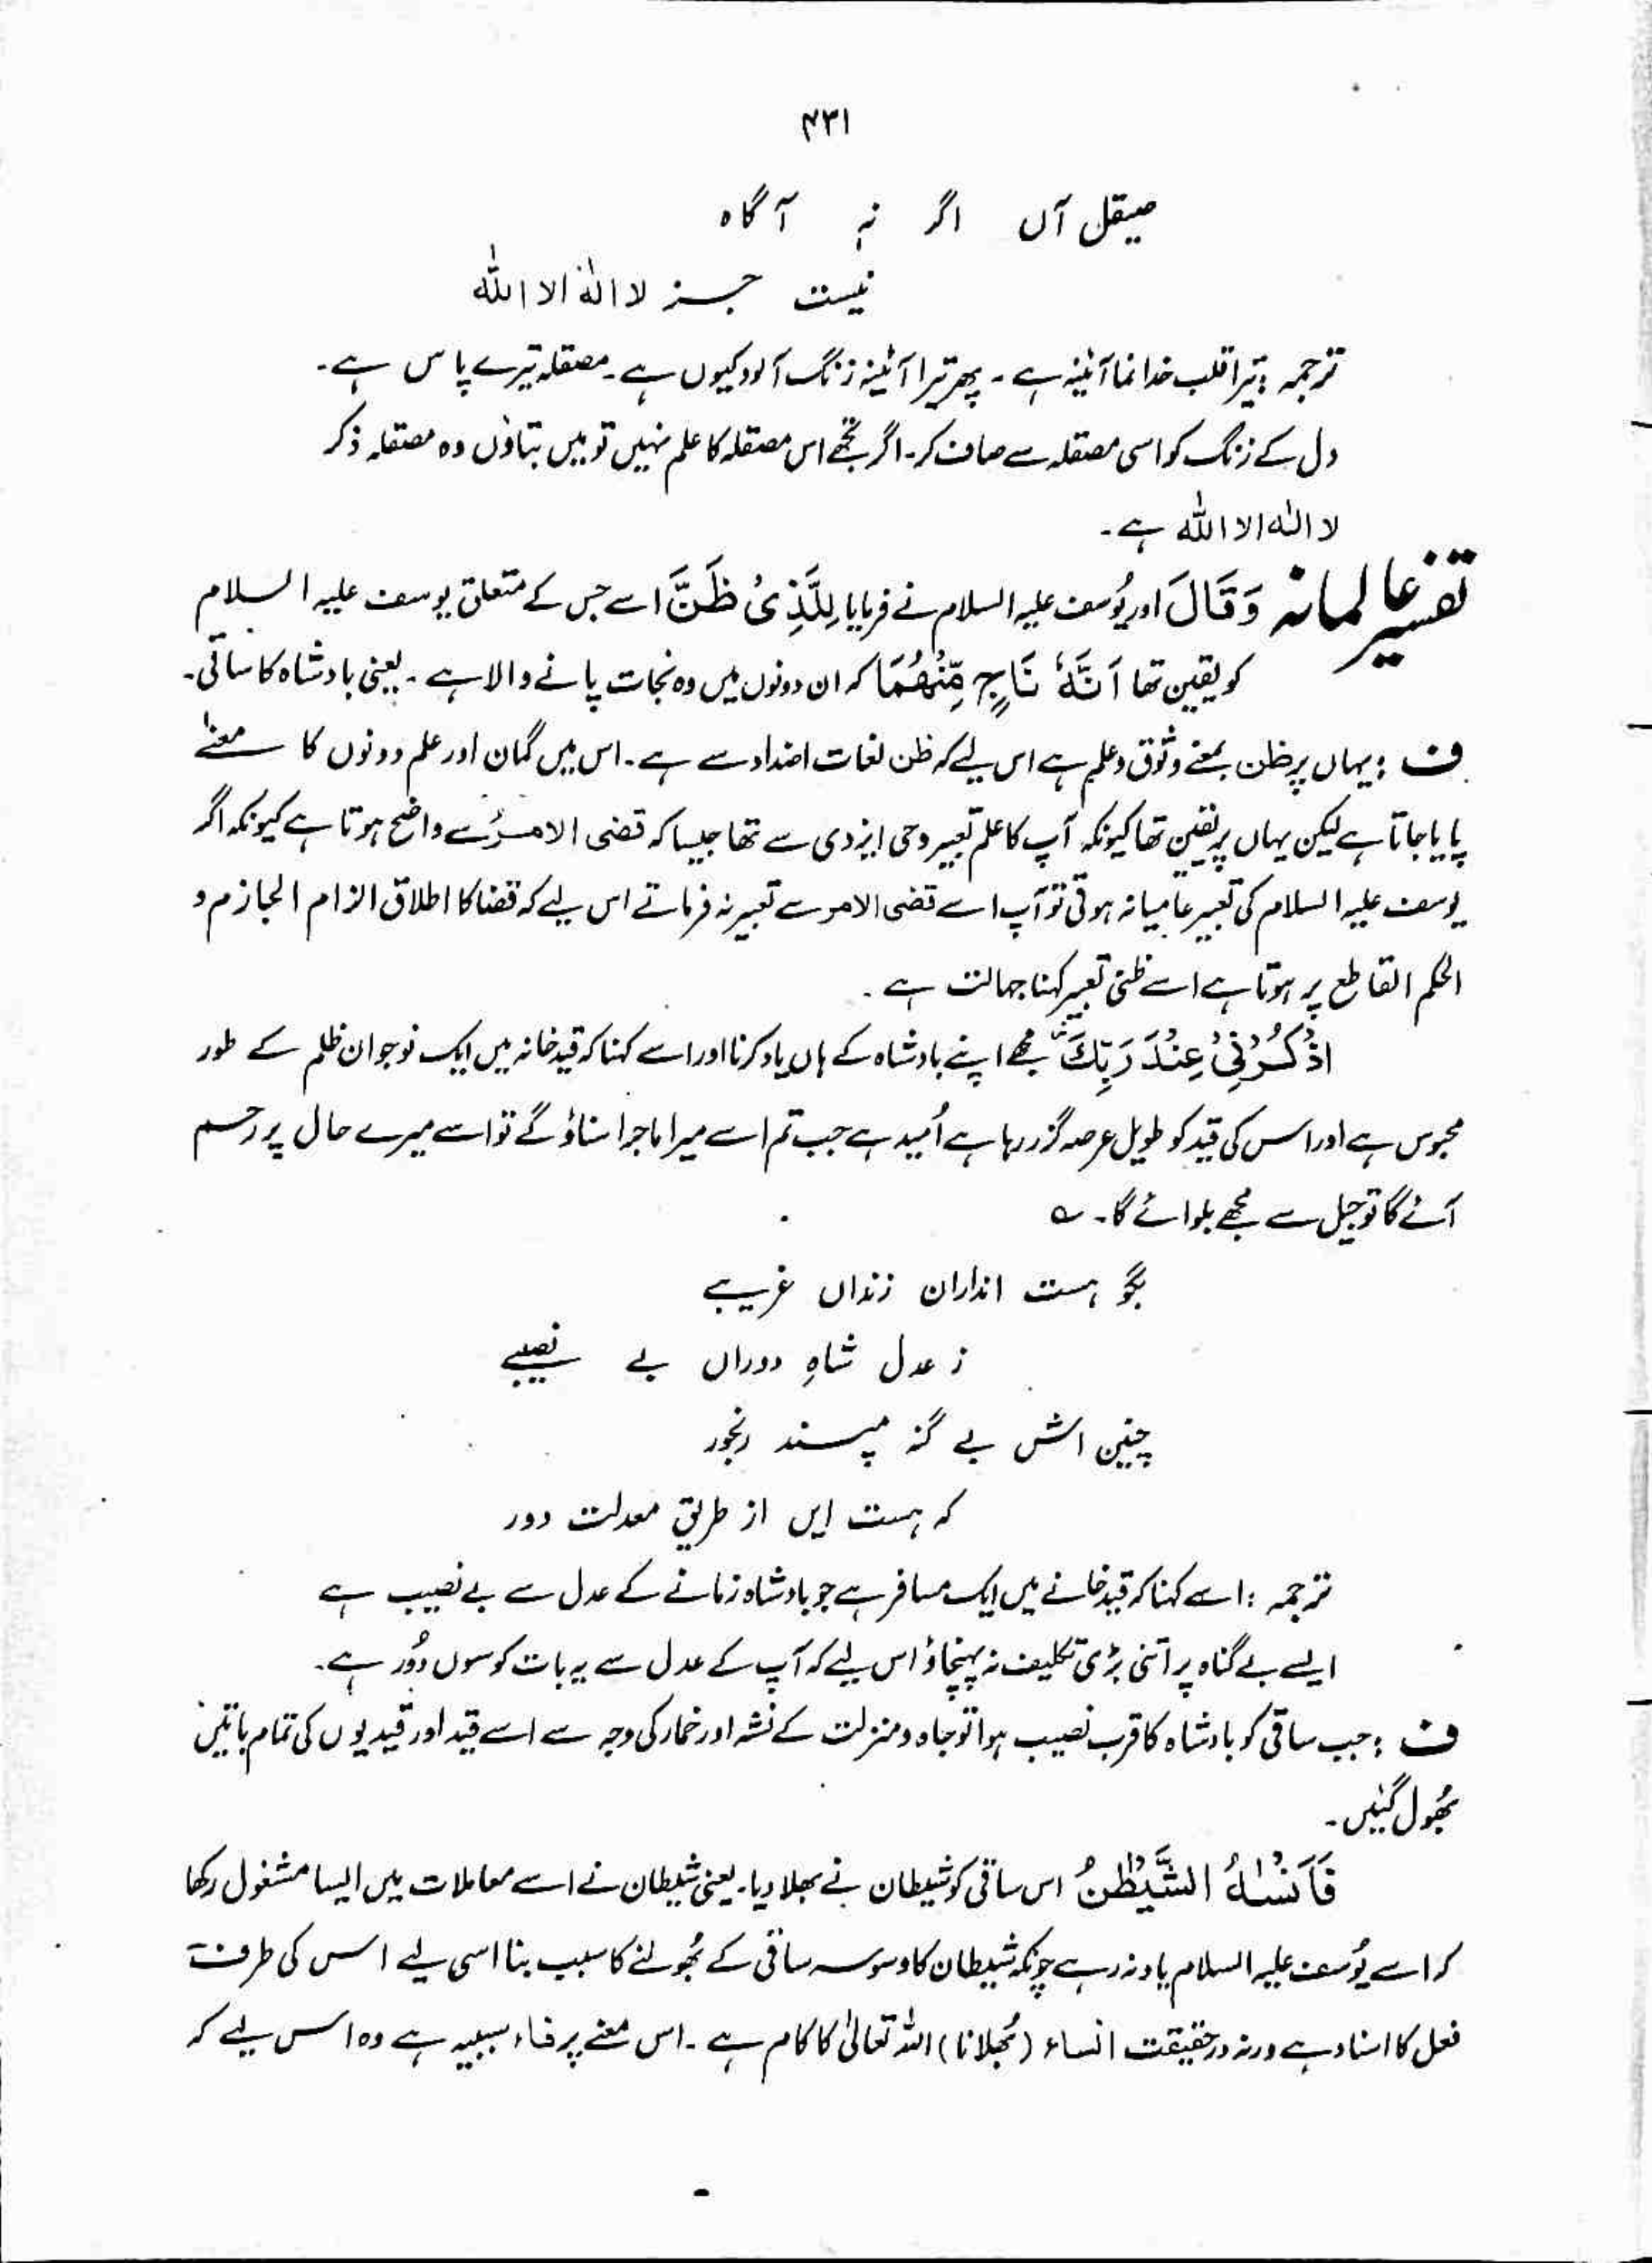 ۴۳۱
صیقل آں اگر نۂ آگاہ
نیست جز لا الٰہ الا اللہ
ترجمہ : تیرا قلب خدا نما آئینہ ہے ۔ پھر تیرا آئینہ زنگ آلود کیوں ہے ۔ مصقلہ تیرے پاس ہے ۔
دل کے زنگ کو اسی مصقلہ سے صاف کر ۔ اگر تجھے اس مصقلہ کا علم نہیں تو میں بتاؤں وہ مصقلہ ذکر
لا الٰہ الا اللہ ہے ۔
تفسیر عالمانہ وَقَالَ اور یُوسف علیہ السلام نے فرمایا لِلَّذِیْ ظَنَّ اسے جس کے متعلق یوسف علیہ السلام
کو یقین تھا اَنَّہٗ نَاجٍ مِّنْھُمَا کہ ان دونوں میں وہ نجات پانے والا ہے ۔ یعنی بادشاہ کا ساقی ۔
ف : یہاں پر ظن بمعنے وثوق و علم ہے اس لیے کہ ظن لغات اضداد سے ہے ۔ اس میں گمان اور علم دونوں کا معنے
پایا جاتا ہے لیکن یہاں پر یقین تھا کیونکہ آپ کا علم تعبیر وحی ایزدی سے تھا جیسا کہ قضی الامرُ سے واضح ہوتا ہے کیونکہ اگر
یوسف علیہ السلام کی تعبیر عامیانہ ہوتی تو آپ اسے قضی الامر سے تعبیر نہ فرماتے اس لیے کہ قضا کا اطلاق الزام الجازم و
الحکم القاطع پر ہوتا ہے اسے ظنی تعبیر کہنا جہالت ہے ۔
اذْکُرْنِیْ عِنْدَ رَبِّکَ مجھے اپنے بادشاہ کے ہاں یاد کرنا اور اسے کہنا کہ قید خانہ میں ایک نوجوان ظلم کے طور
محبوس ہے اور اس کی قید کو طویل عرصہ گزر رہا ہے اُمید ہے جب تم اسے میرا ماجرا سناؤ گے تو اسے میرے حال پر رحم
آئے گا تو جیل سے مجھے بلوائے گا ۔ ؎
بگو ہست اندراں زنداں غریبے
ز عدل شاہِ دوراں بے نصیبے
چنیں اش بے گنہ مپسند رنجور
کہ ہست ایں از طریقِ معدلت دور
ترجمہ : اسے کہنا کہ قید خانے میں ایک مسافر ہے جو بادشاہ زمانے کے عدل سے بے نصیب ہے
ایسے بے گناہ پر اتنی بڑی تکلیف نہ پہنچاؤ اس لیے کہ آپ کے عدل سے یہ بات کوسوں دُور ہے ۔
ف : جب ساقی کو بادشاہ کا قرب نصیب ہوا تو جاہ و منزلت کے نشہ اور خمار کی وجہ سے اسے قید اور قیدیوں کی تمام باتیں
بھُول گئیں ۔
فَاَنْسٰہُ الشَّیْطٰنُ اس ساقی کو شیطان نے بھلا دیا ۔ یعنی شیطان نے اسے معاملات میں ایسا مشغول رکھا
کہ اسے یُوسف علیہ السلام یاد نہ رہے چونکہ شیطان کا وسوسہ ساقی کے بھُولنے کا سبب بنا اسی لیے اس کی طرف
فعل کا اسناد ہے ورنہ درحقیقت انساء (بُھلانا) اللہ تعالیٰ کا کام ہے ۔ اس معنے پر فاء سببیہ ہے وہ اس لیے کہ